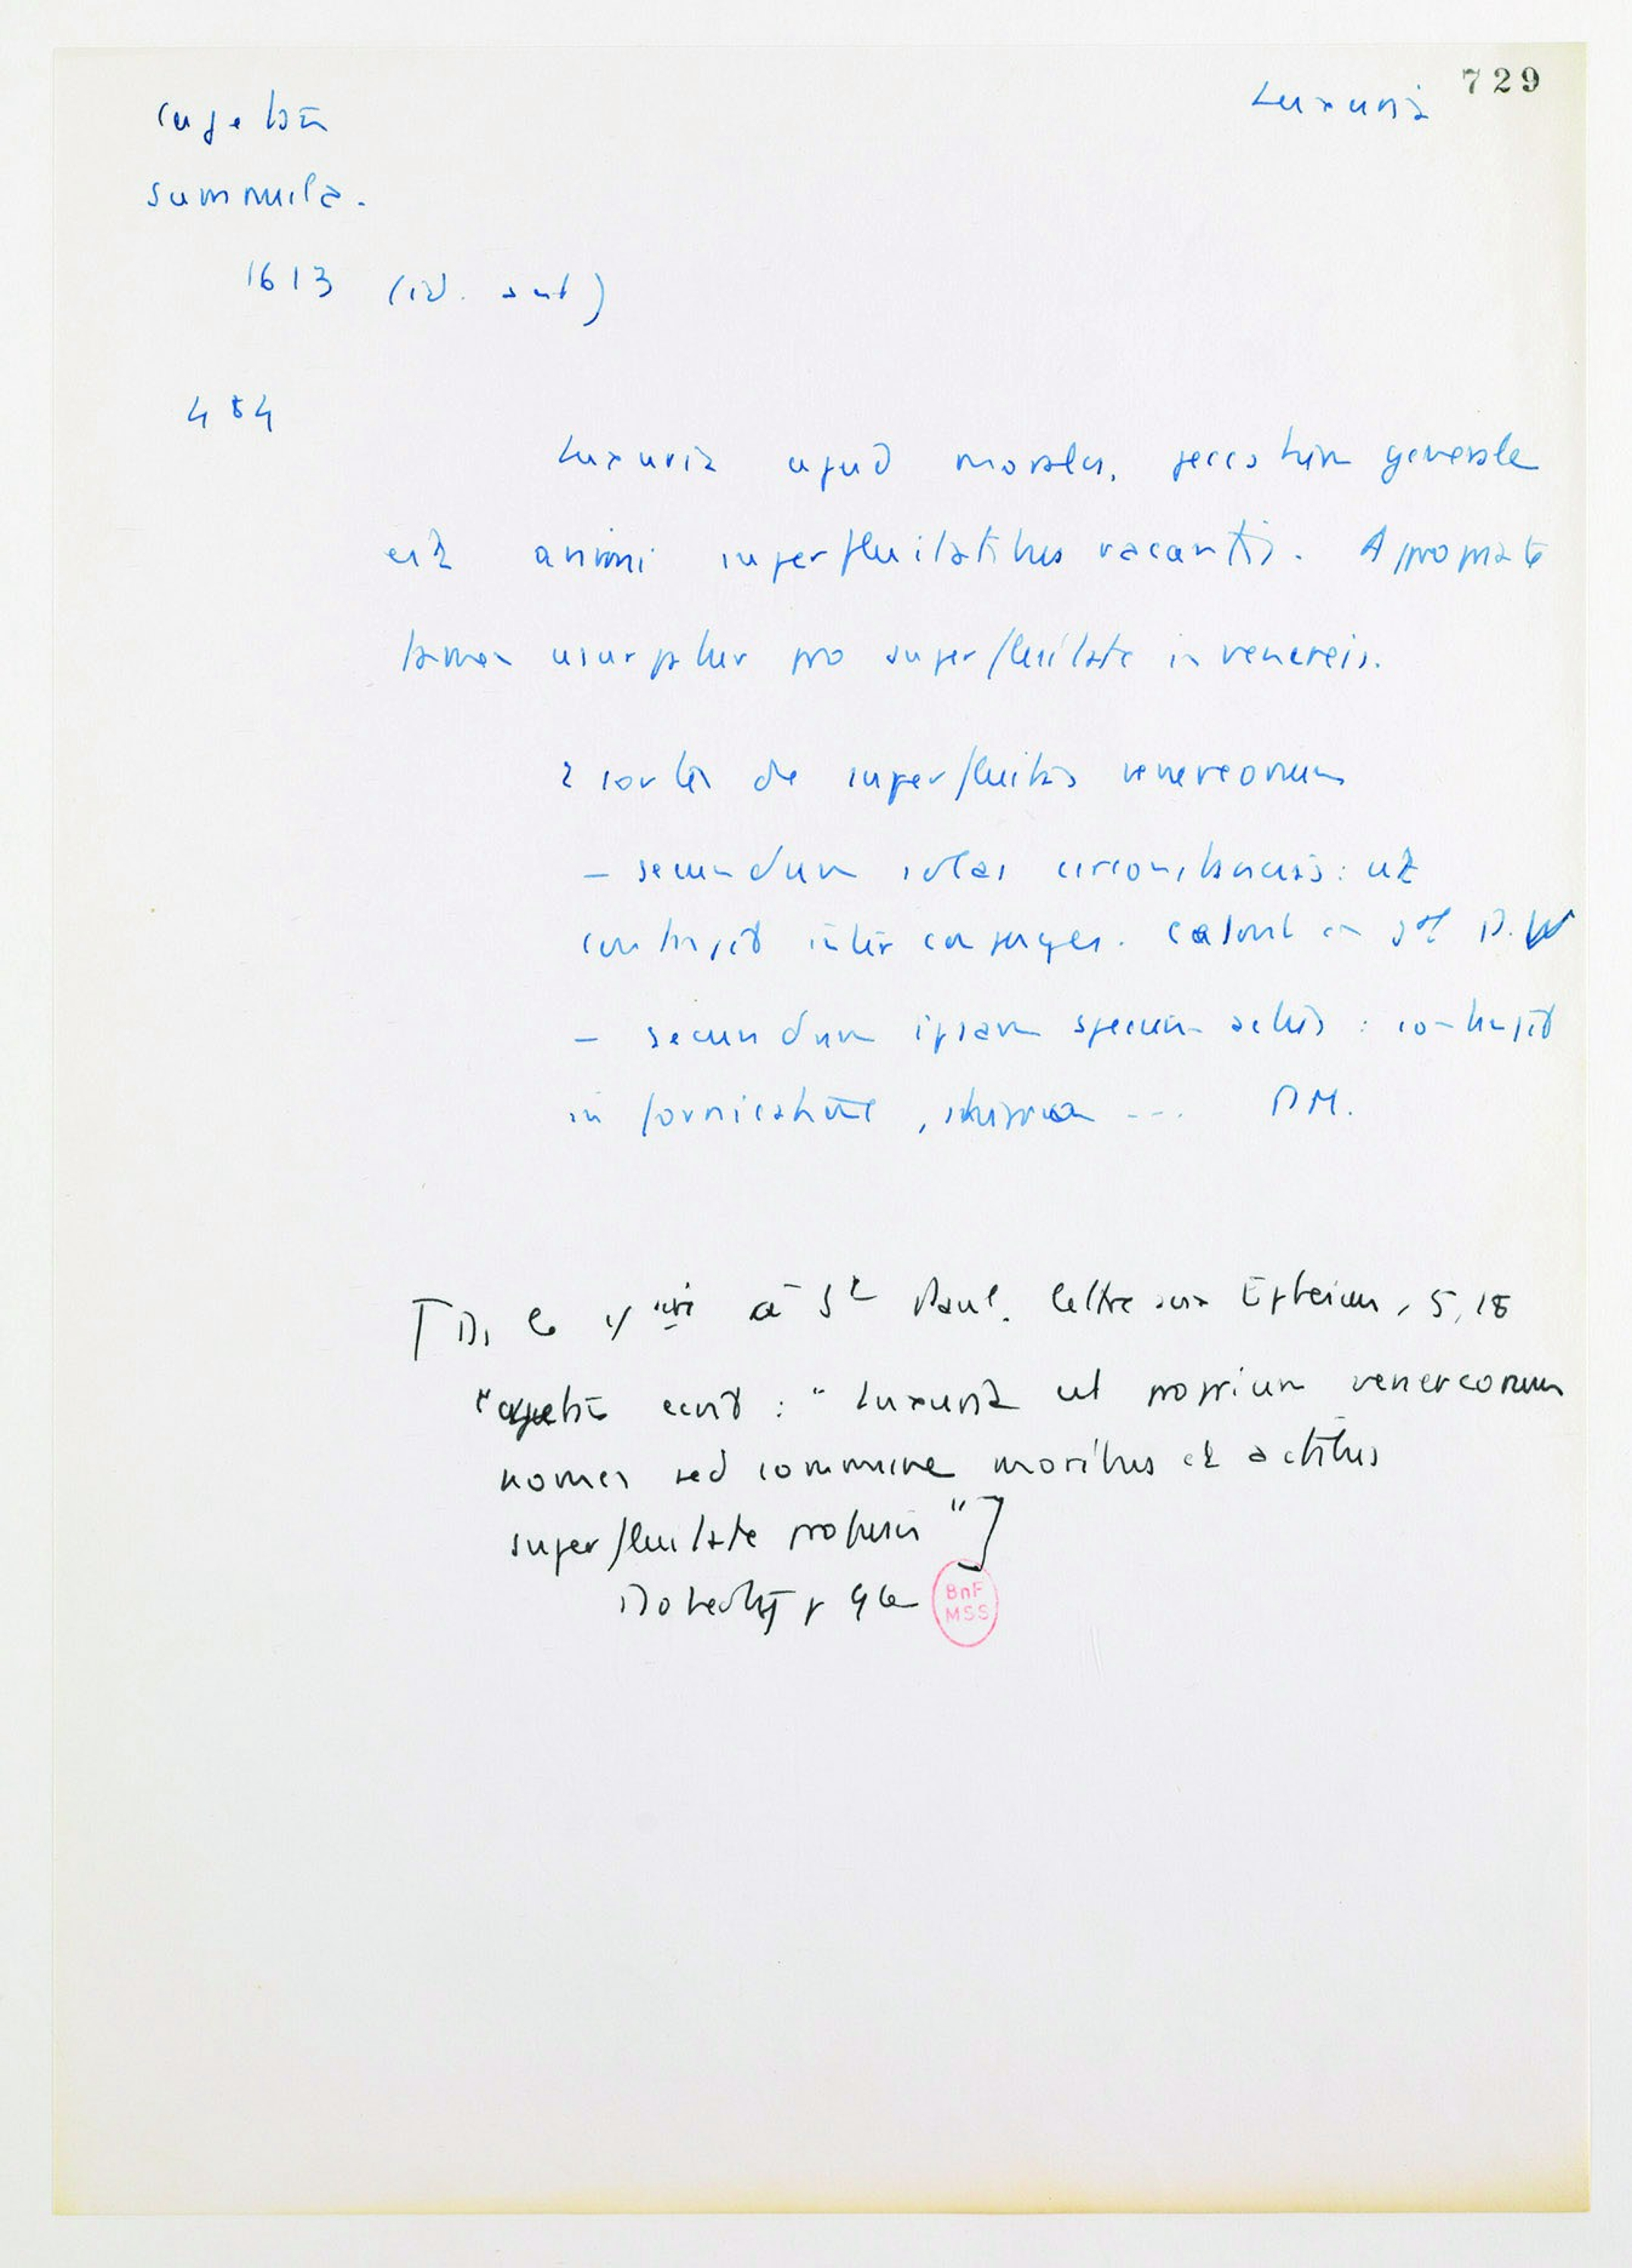 729
Luxuria
Cajetan
Summula.
1613 (éd. ant)
484
Luxuria apud morales, peccatum generale
est animi superfluitatibus vacantis. Appropriate
tamen usurpatur pro superfluitate in venereis.
2 sortes de superfluitas venereorum
- secundum solas circonstancias : ut
contingit inter conjuges.
- secundum ipsam speciem actus : contingit
in fornicatione, stupro --- P.M.
[Ds le à St Paul. lettre aux Ephesiens, 5, 18
Cajetan écrit : " Luxuria ut proprium venereorum
nomen sed commune moribus et actibus
superfluitate profusis "]
Doherty p 96
BnF
MSS